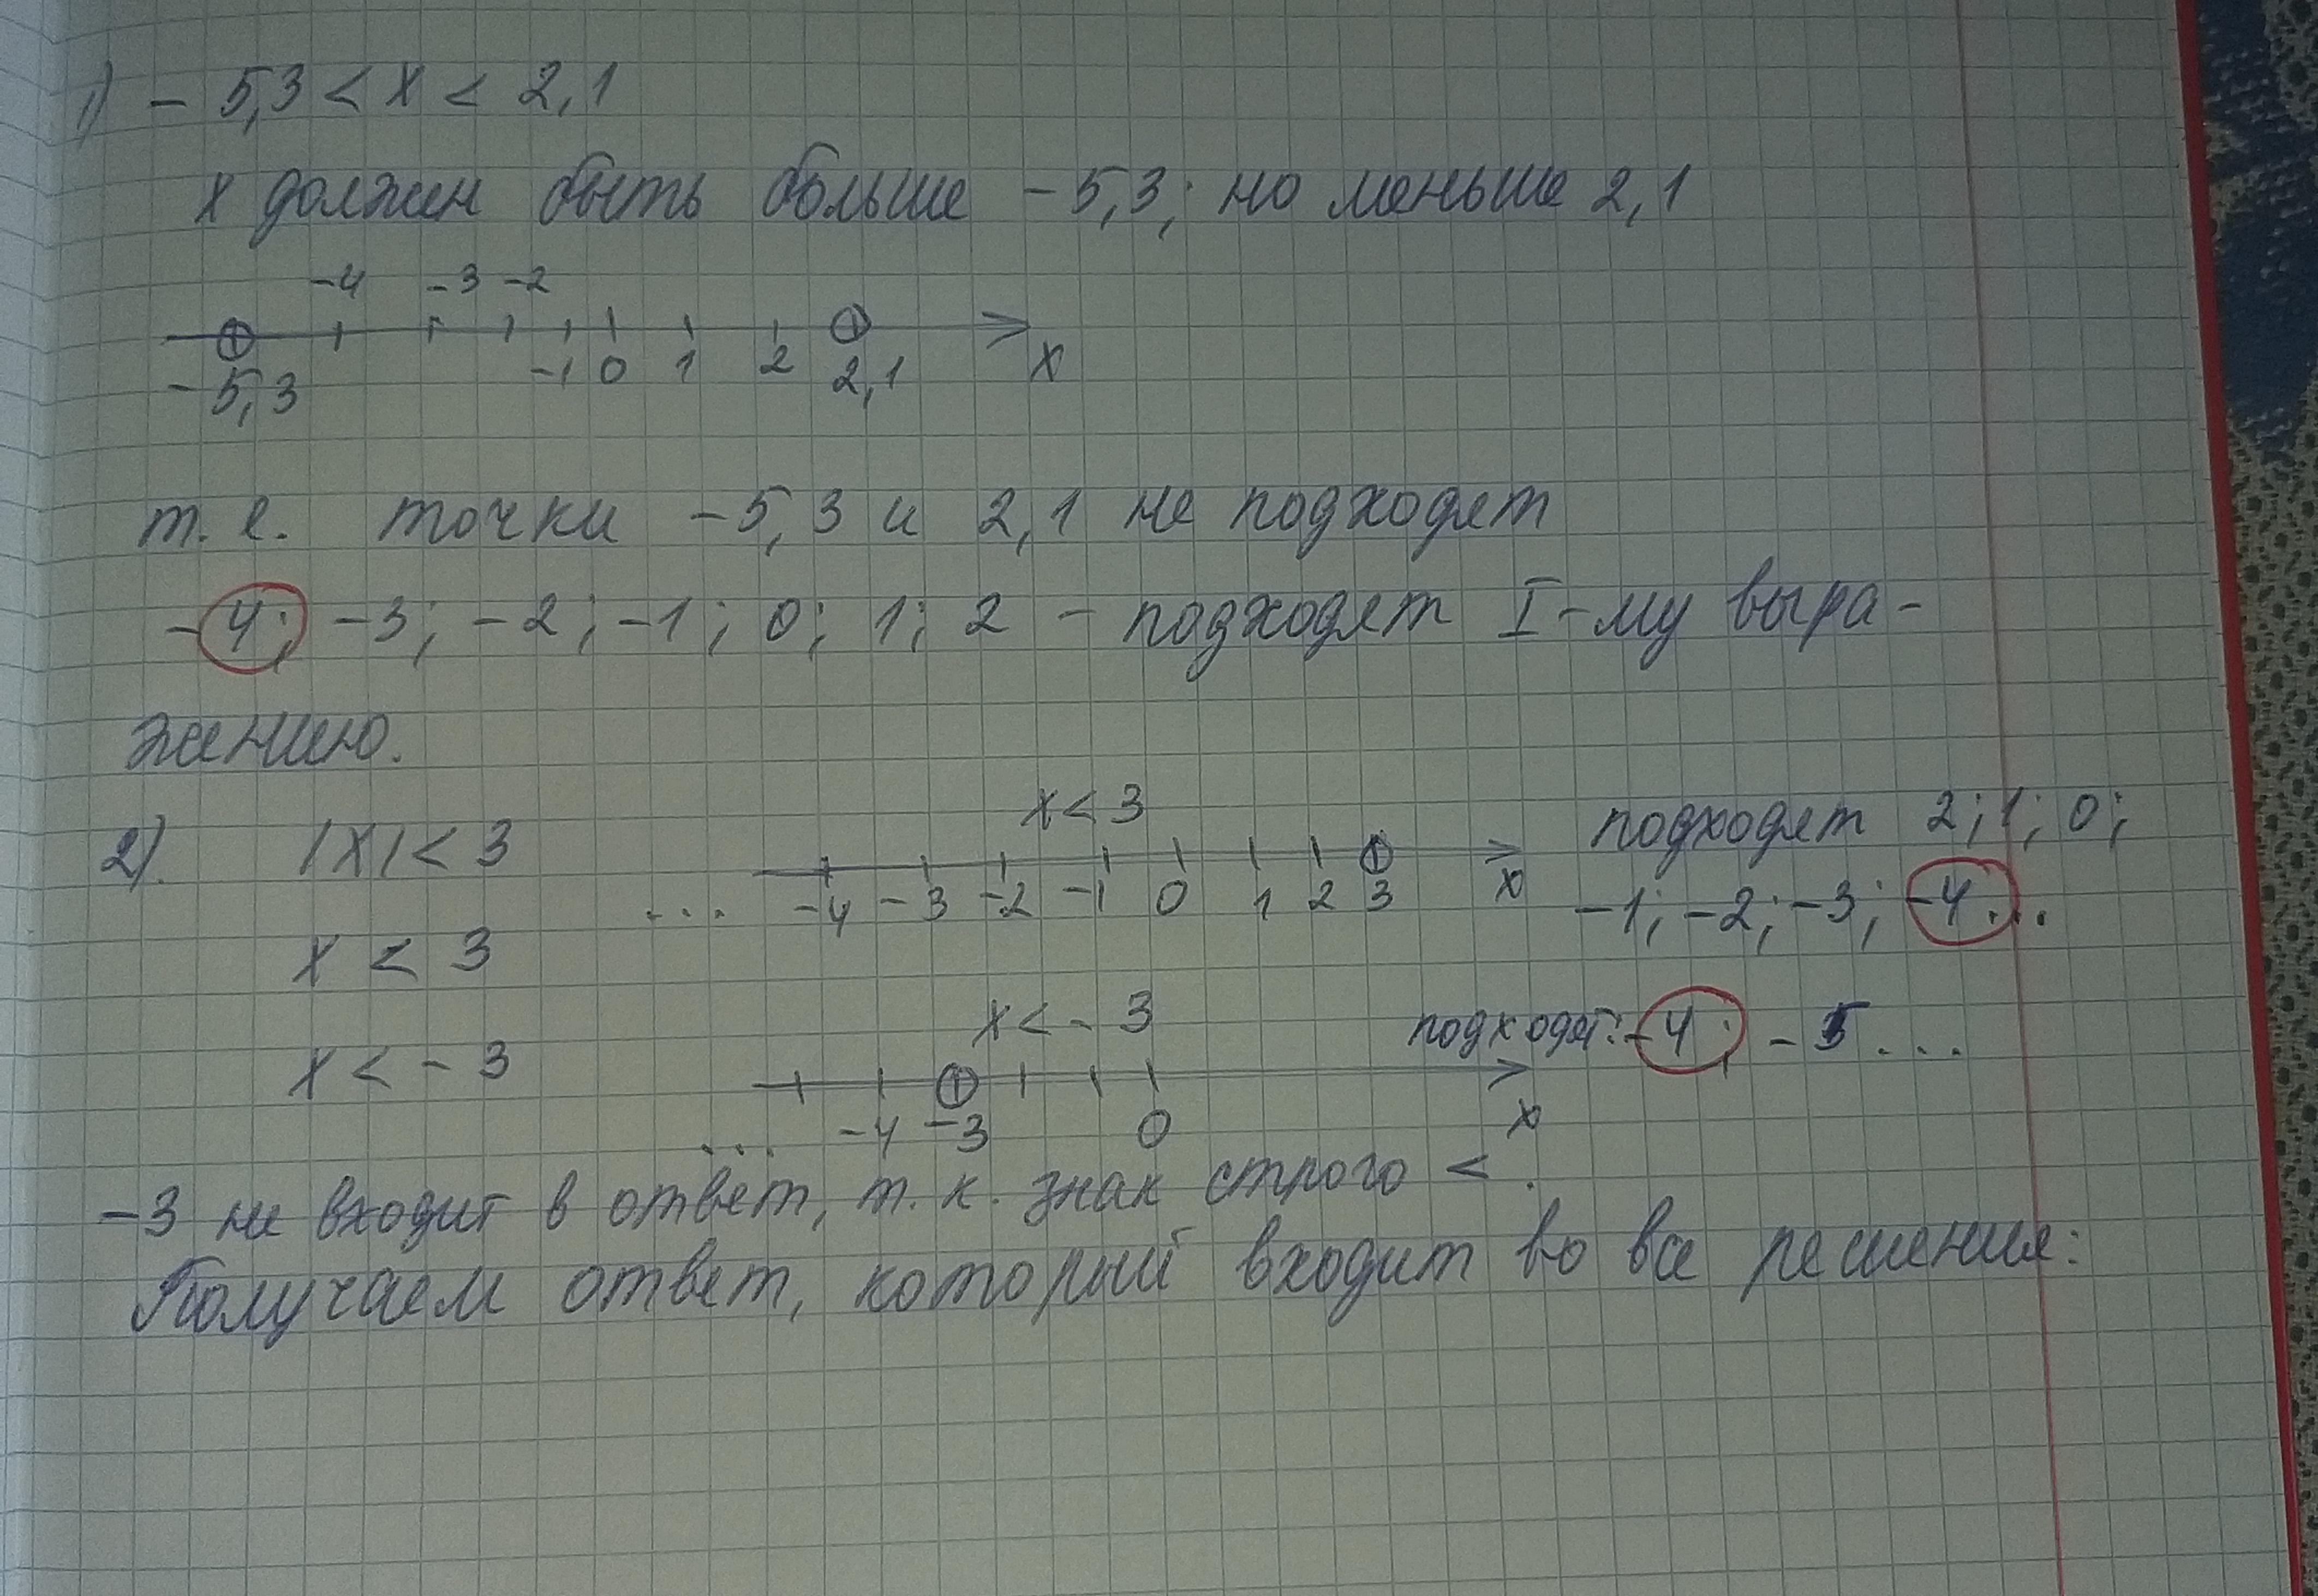 1) - 5,3 < x < 2,1
x должен быть больше -5,3; но меньше 2,1
-4 -3 -2
-5,3 -1 0 1 2 2,1 x
т. е. точки -5,3 и 2,1 не подходят
-4; -3; -2; -1; 0; 1; 2 - подходят I-му выра-
жению.
2). |x| < 3
x < 3
x < - 3
x < 3
... -4 -3 -2 -1 0 1 2 3 x
подходят 2; 1; 0;
-1; -2; -3; -4...
x < - 3
... -4 -3 0 x
подходят: -4; -5...
-3 не входит в ответ, т. к. знак строго < .
Получаем ответ, который входит во все решения: